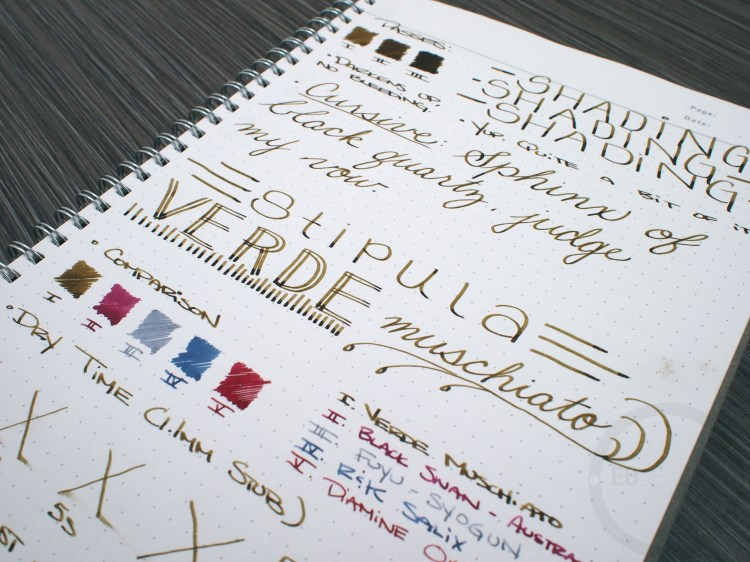 Passes:
I II III
• Darkens up,
no bleeding.
Page:
Date:
– SHADING
– SHADING
– SHADING
Yes. Quite a bit of it
• Cursive: Sphinx of
black quartz, judge
my vow
Stipula
VERDE
muschiato
• Comparison
I II III IV V
• Dry Time (1.1mm Stub)
5s
I Verde Muschiato
II Black Swan - Austra
III Fuyu - Syogun
IV R&K Salix
V Diamine
ED